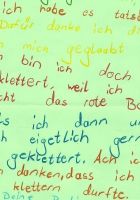 ich habe es tats
Dafür danke ich d
n mich geglaubt
n bin ich doch
klettert, weil ich
cht das rote Bo
s ich dann un
h eigetlich gern
geklettert. Ach ic
danken, dass ich
klettern durfte.